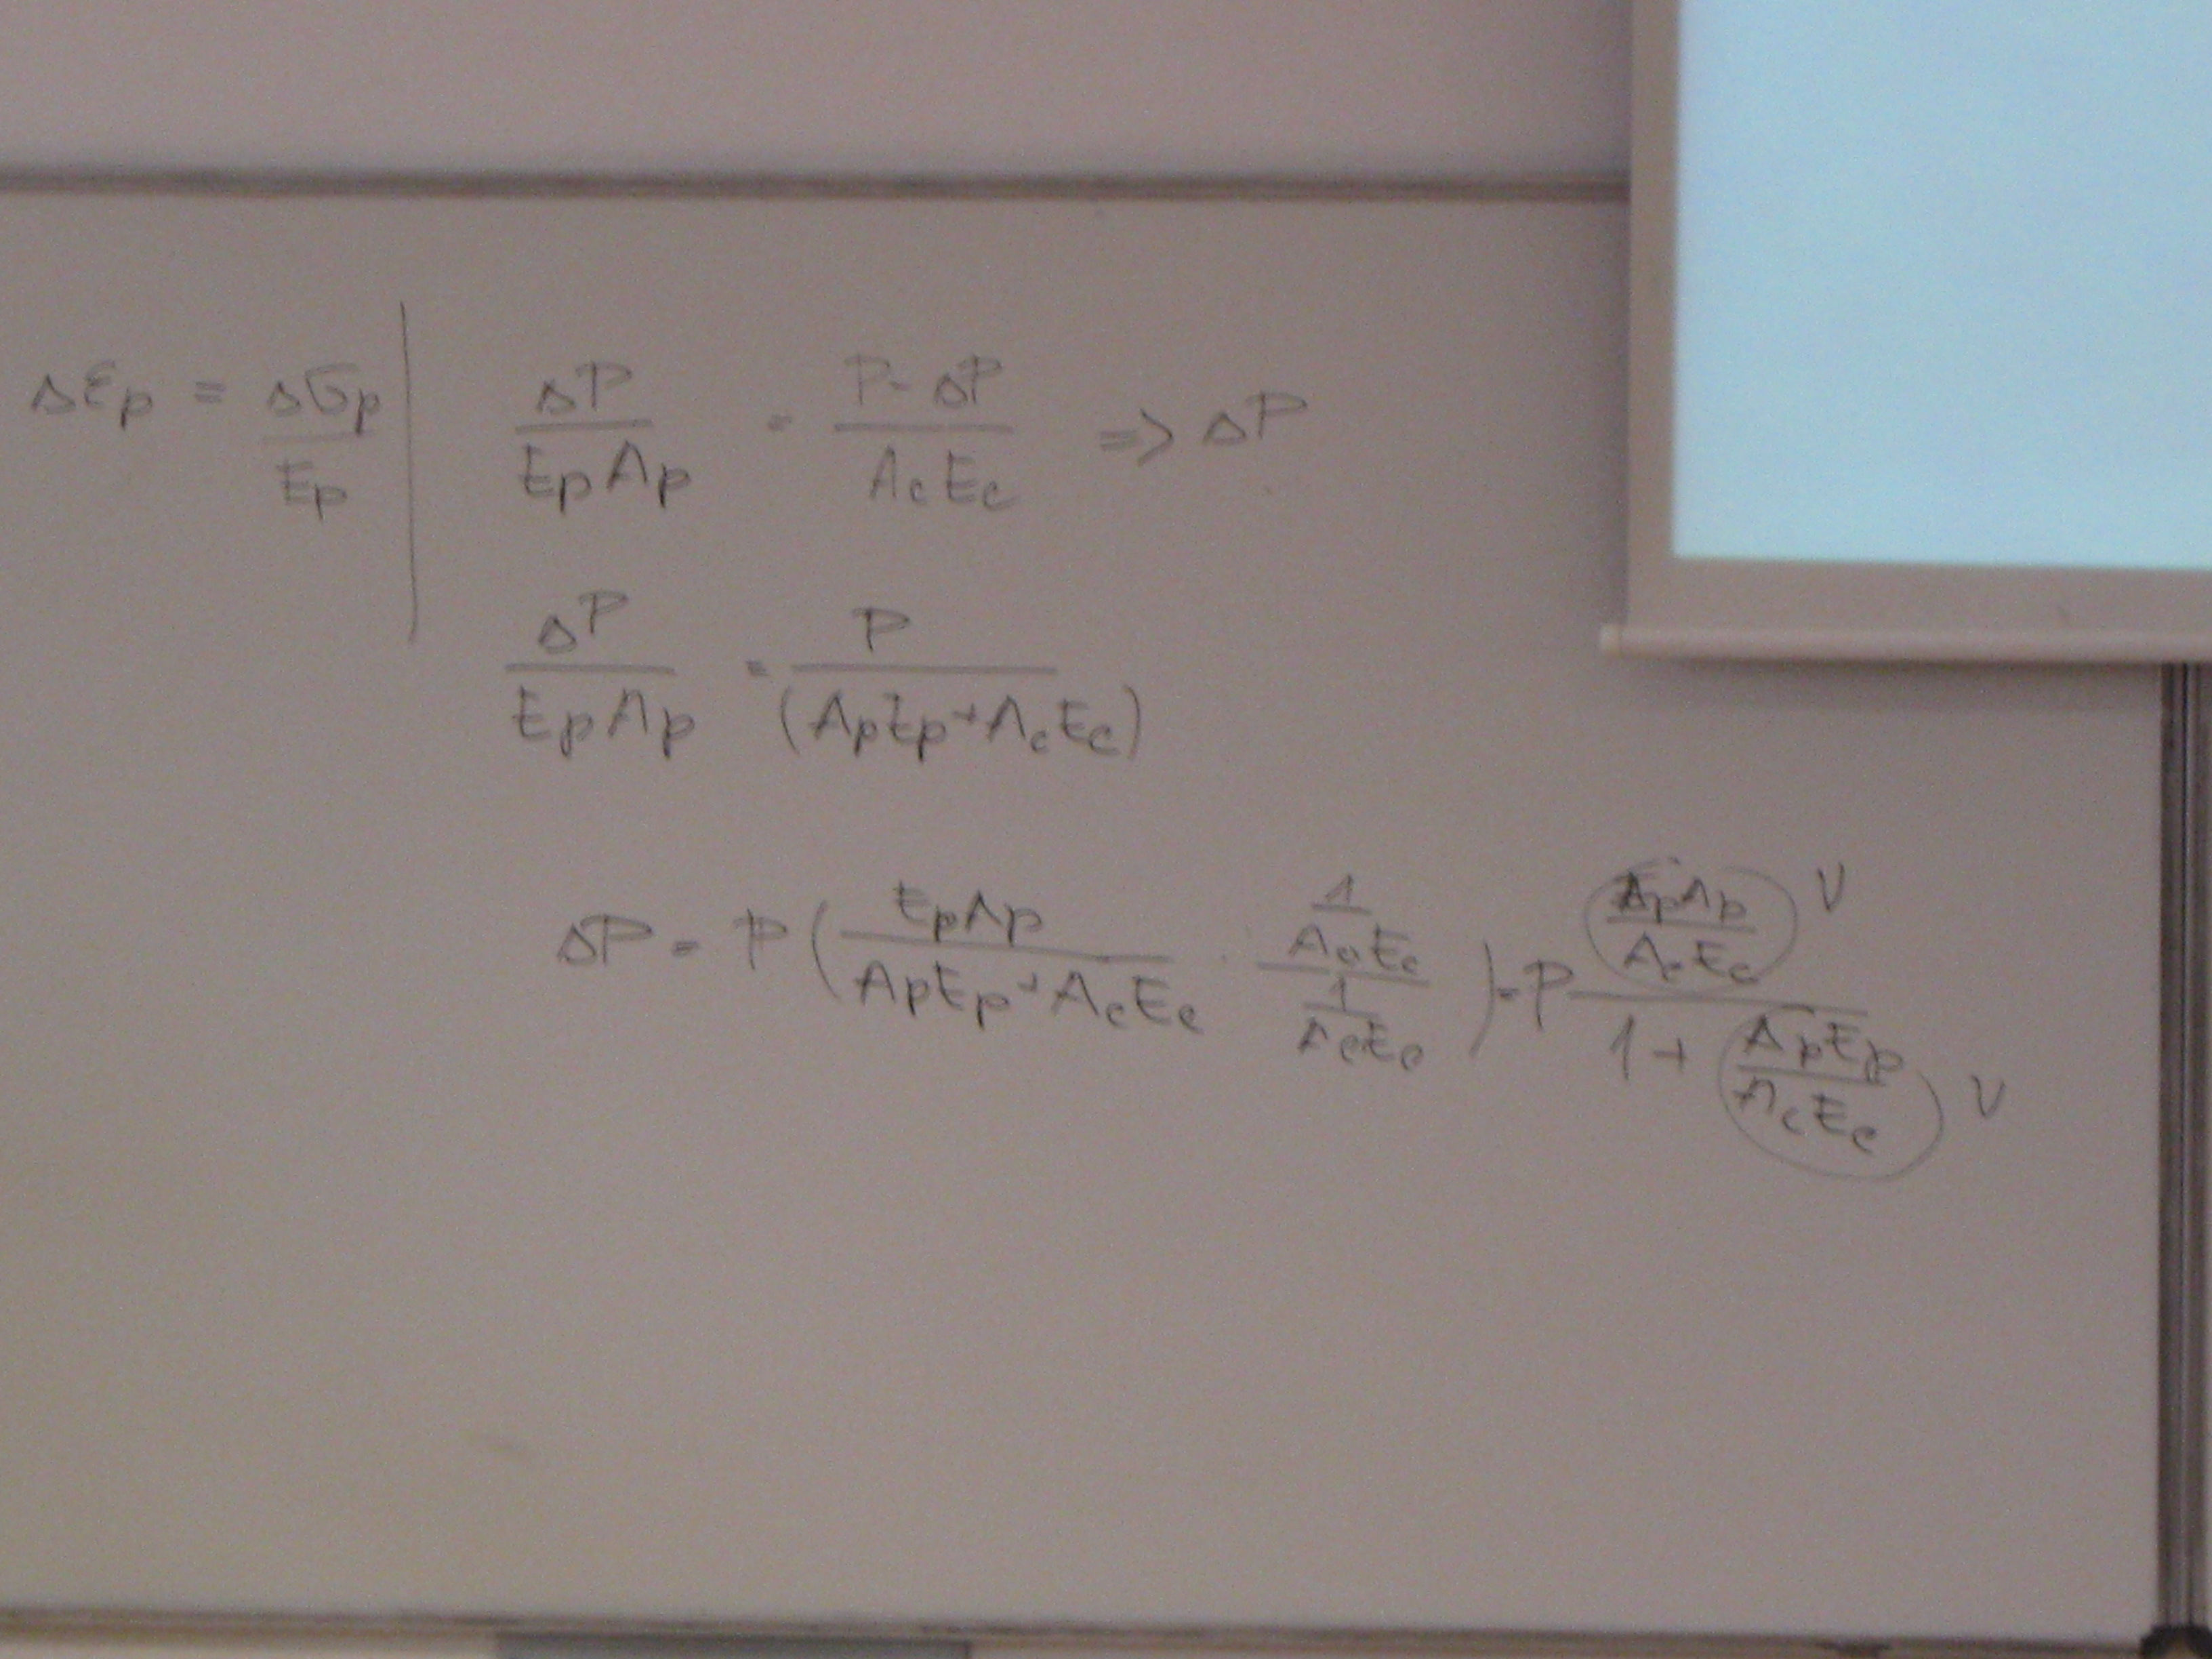 ΔEp = Δσp / Ep | ΔP / EpAp = P - ΔP / AcEc => ΔP
ΔP / EpAp = P / (ApEp + AcEc)
ΔP = P ( EpAp / ApEp + AcEc · 1/AcEc / 1/AcEc ) = P EpAp/AcEc ν / 1 + ApEp/AcEc ν